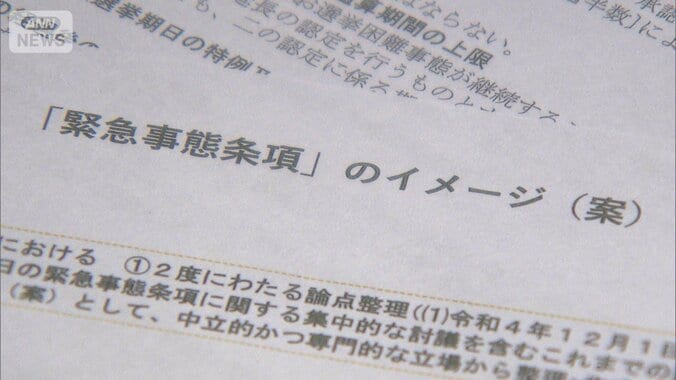 ANN
NEWS
はならない。
期間の上限
選挙困難事態が継続する
長の認定を行うものと
も、二の認定に係る
選挙期日の特例
承認
半数]によ
「緊急事態条項」のイメージ（案）
における　①２度にわたる論点整理((1)令和４年１２月１
日の緊急事態条項に関する集中的な討議を含むこれまでの
（案）として、中立的かつ専門的な立場から整理